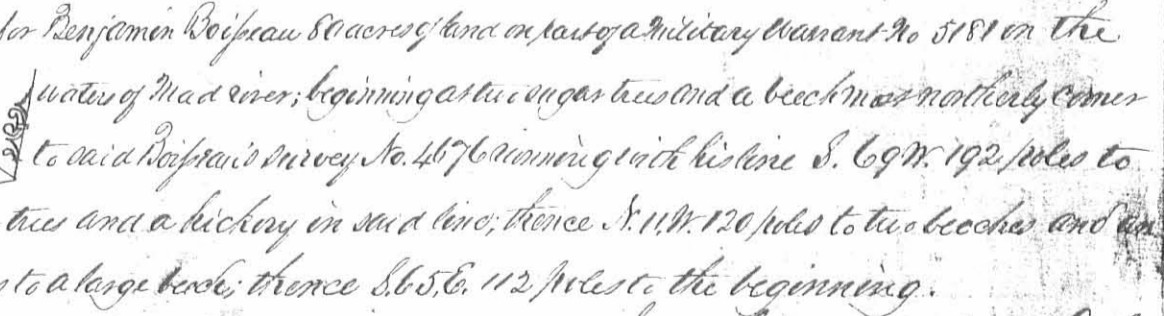 for Benjamin Boisseau 80 acres of land on part of a Military Warrant No 5181 on the
waters of Mad river; beginning at two sugar trees and a beech most northerly corner
to said Boisseau's survey No. 4676 running with his line S. 69 W. 192 poles to
trees and a hickory in said line; thence N. 11. W. 120 poles to two beeches and an
to a large beech; thence S. 65. E. 112 poles to the beginning.